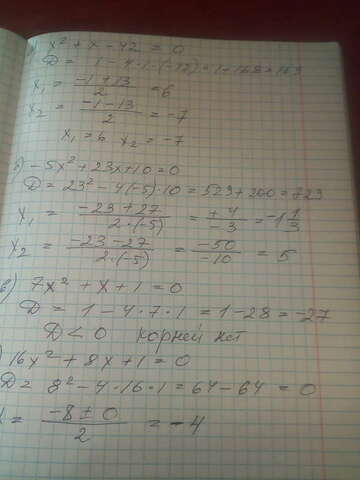 x² + x - 42 = 0
D = 1 - 4·1·(-42) = 1 + 168 = 169
x₁ = (-1 + 13)/2 = 6
x₂ = (-1 - 13)/2 = -7
x₁ = 6 x₂ = -7
б) -5x² + 23x + 10 = 0
D = 23² - 4(-5)·10 = 529 + 200 = 729
x₁ = (-23 + 27)/(2·(-5)) = (+4)/(-3) = -1 1/3
x₂ = (-23 - 27)/(2·(-5)) = (-50)/(-10) = 5
в) 7x² + x + 1 = 0
D = 1 - 4·7·1 = 1 - 28 = -27
D < 0 корней нет
) 16x² + 8x + 1 = 0
D = 8² - 4·16·1 = 64 - 64 = 0
= (-8 ± 0)/2 = -4